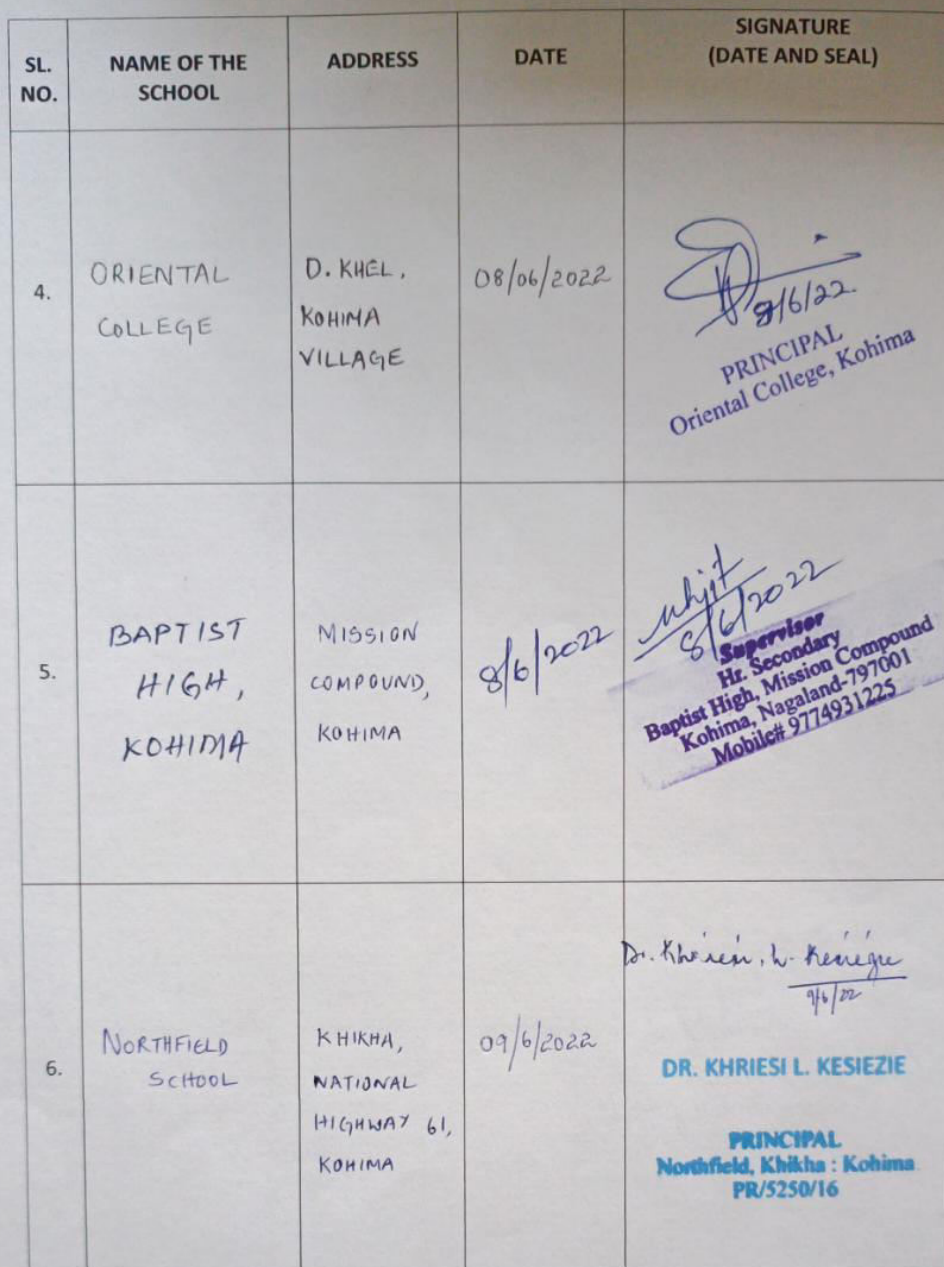 SL. NO.
NAME OF THE SCHOOL
ADDRESS
DATE
SIGNATURE
(DATE AND SEAL)
4.
ORIENTAL
COLLEGE
D. KHEL,
KOHIMA
VILLAGE
08/06/2022
8/6/22.
PRINCIPAL
Oriental College, Kohima
5.
BAPTIST
HIGH,
KOHIMA
MISSION
COMPOUND,
KOHIMA
8/6/2022
8/6/2022
Supervisor
Hr. Secondary
Baptist High, Mission Compound
Kohima, Nagaland-797001
Mobile# 9774931225
6.
NORTHFIELD
SCHOOL
KHIKHA,
NATIONAL
HIGHWAY 61,
KOHIMA
09/6/2022
Dr.
9/6/22
DR. KHRIESI L. KESIEZIE
PRINCIPAL
Northfield, Khikha : Kohima
PR/5250/16